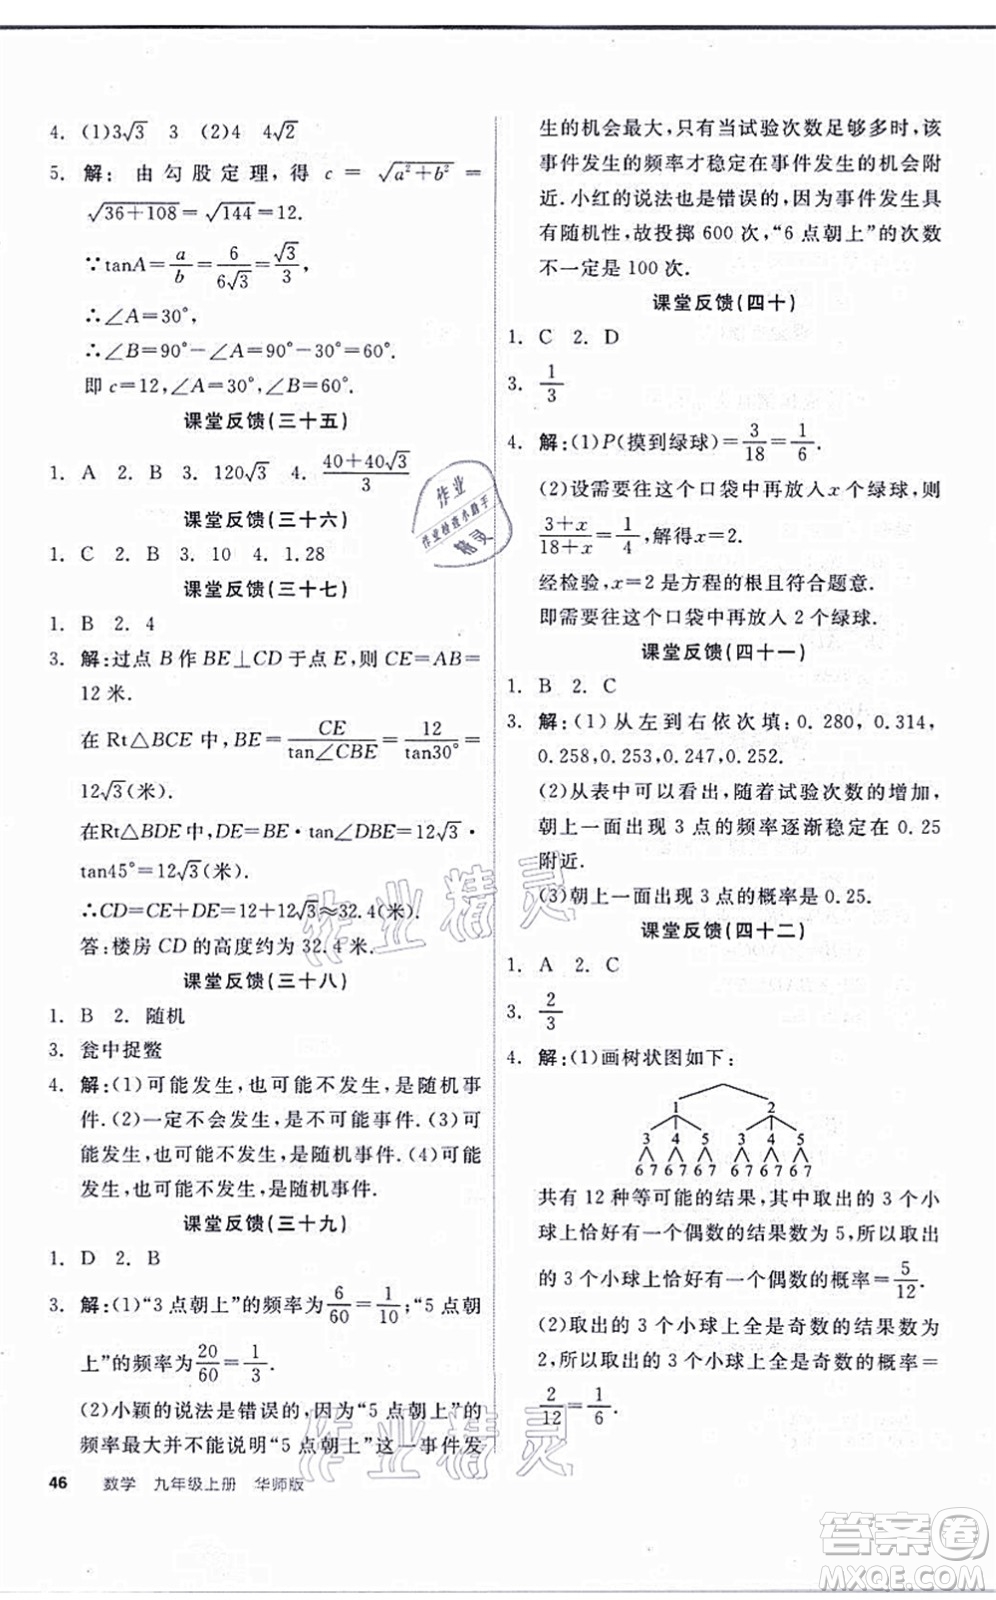 4. (1)3√3  3  (2)4  4√2
5. 解: 由勾股定理,得 c = √(a²+b²) =
√(36+108) = √144 = 12.
∵tanA = a/b = 6/(6√3) = √3/3,
∴∠A=30°,
∴∠B=90°-∠A=90°-30°=60°.
即 c=12,∠A=30°,∠B=60°.
课堂反馈(三十五)
1. A  2. B  3. 120√3  4. (40+40√3)/3
课堂反馈(三十六)
1. C  2. B  3. 10  4. 1.28
课堂反馈(三十七)
1. B  2. 4
3. 解:过点 B 作 BE⊥CD 于点 E,则 CE=AB=
12 米.
在 Rt△BCE 中, BE = CE/tan∠CBE = 12/tan30° =
12√3(米).
在Rt△BDE 中,DE=BE·tan∠DBE=12√3·
tan45°=12√3(米).
∴CD=CE+DE=12+12√3≈32.4(米).
答:楼房 CD 的高度约为 32.4 米.
课堂反馈(三十八)
1. B  2. 随机
3. 瓮中捉鳖
4. 解:(1)可能发生,也可能不发生,是随机事
件.(2)一定不会发生,是不可能事件.(3)可
能发生,也可能不发生,是随机事件.(4)可能
发生,也可能不发生,是随机事件.
课堂反馈(三十九)
1. D  2. B
3. 解:(1)“3 点朝上”的频率为 6/60 = 1/10;“5 点朝
上”的频率为 20/60 = 1/3.
(2)小颖的说法是错误的,因为“5 点朝上”的
频率最大并不能说明“5 点朝上”这一事件发
46  数学  九年级上册  华师版
生的机会最大,只有当试验次数足够多时,该
事件发生的频率才稳定在事件发生的机会附
近.小红的说法也是错误的,因为事件发生具
有随机性,故投掷 600 次,“6 点朝上”的次数
不一定是 100 次.
课堂反馈(四十)
1. C  2. D
3. 1/3
4. 解:(1)P(摸到绿球) = 3/18 = 1/6.
(2)设需要往这个口袋中再放入 x 个绿球,则
(3+x)/(18+x) = 1/4,解得x=2.
经检验,x=2 是方程的根且符合题意.
即需要往这个口袋中再放入 2 个绿球.
课堂反馈(四十一)
1. B  2. C
3. 解:(1)从左到右依次填:0.280,0.314,
0.258,0.253,0.247,0.252.
(2)从表中可以看出,随着试验次数的增加,
朝上一面出现 3 点的频率逐渐稳定在 0.25
附近.
(3)朝上一面出现 3 点的概率是 0.25.
课堂反馈(四十二)
1. A  2. C
3. 2/3
4. 解:(1)画树状图如下:
1  2
3 4 5  3 4 5
67 67 67 67 67 67
共有 12 种等可能的结果,其中取出的 3 个小
球上恰好有一个偶数的结果数为 5,所以取出
的 3 个小球上恰好有一个偶数的概率 = 5/12.
(2)取出的 3 个小球上全是奇数的结果数为
2,所以取出的 3 个小球上全是奇数的概率=
2/12 = 1/6.
作业
作业检查小助手
精灵
作业精灵
作业精灵
答案卷
MXQE.COM